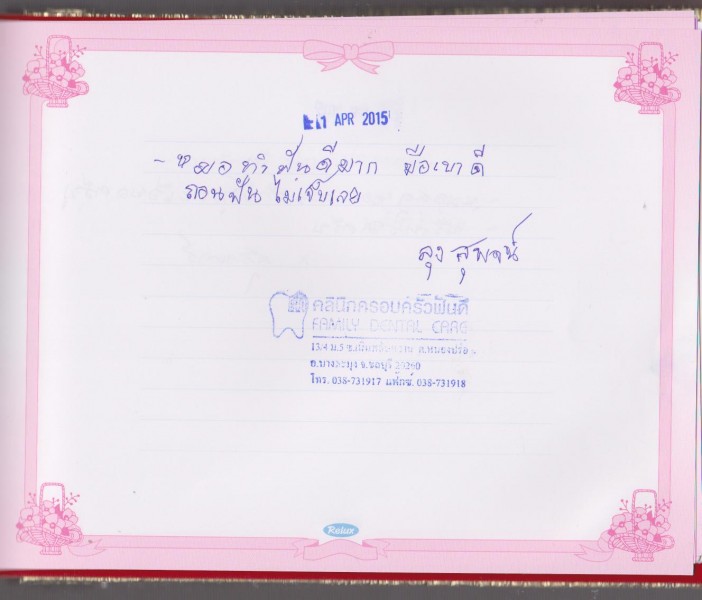 APR 2015
- หมอทำฟันดีมาก มือเบาดี
ถอนฟัน ไม่เจ็บเลย
ลุง สุพจน์
คลินิกครอบครัวฟันดี
FAMILY DENTAL CARE
13/4 ม.5 ต.หนองปรือ
อ.บางละมุง จ.ชลบุรี 20260
โทร. 038-731917 แฟกซ์. 038-731918
Relux